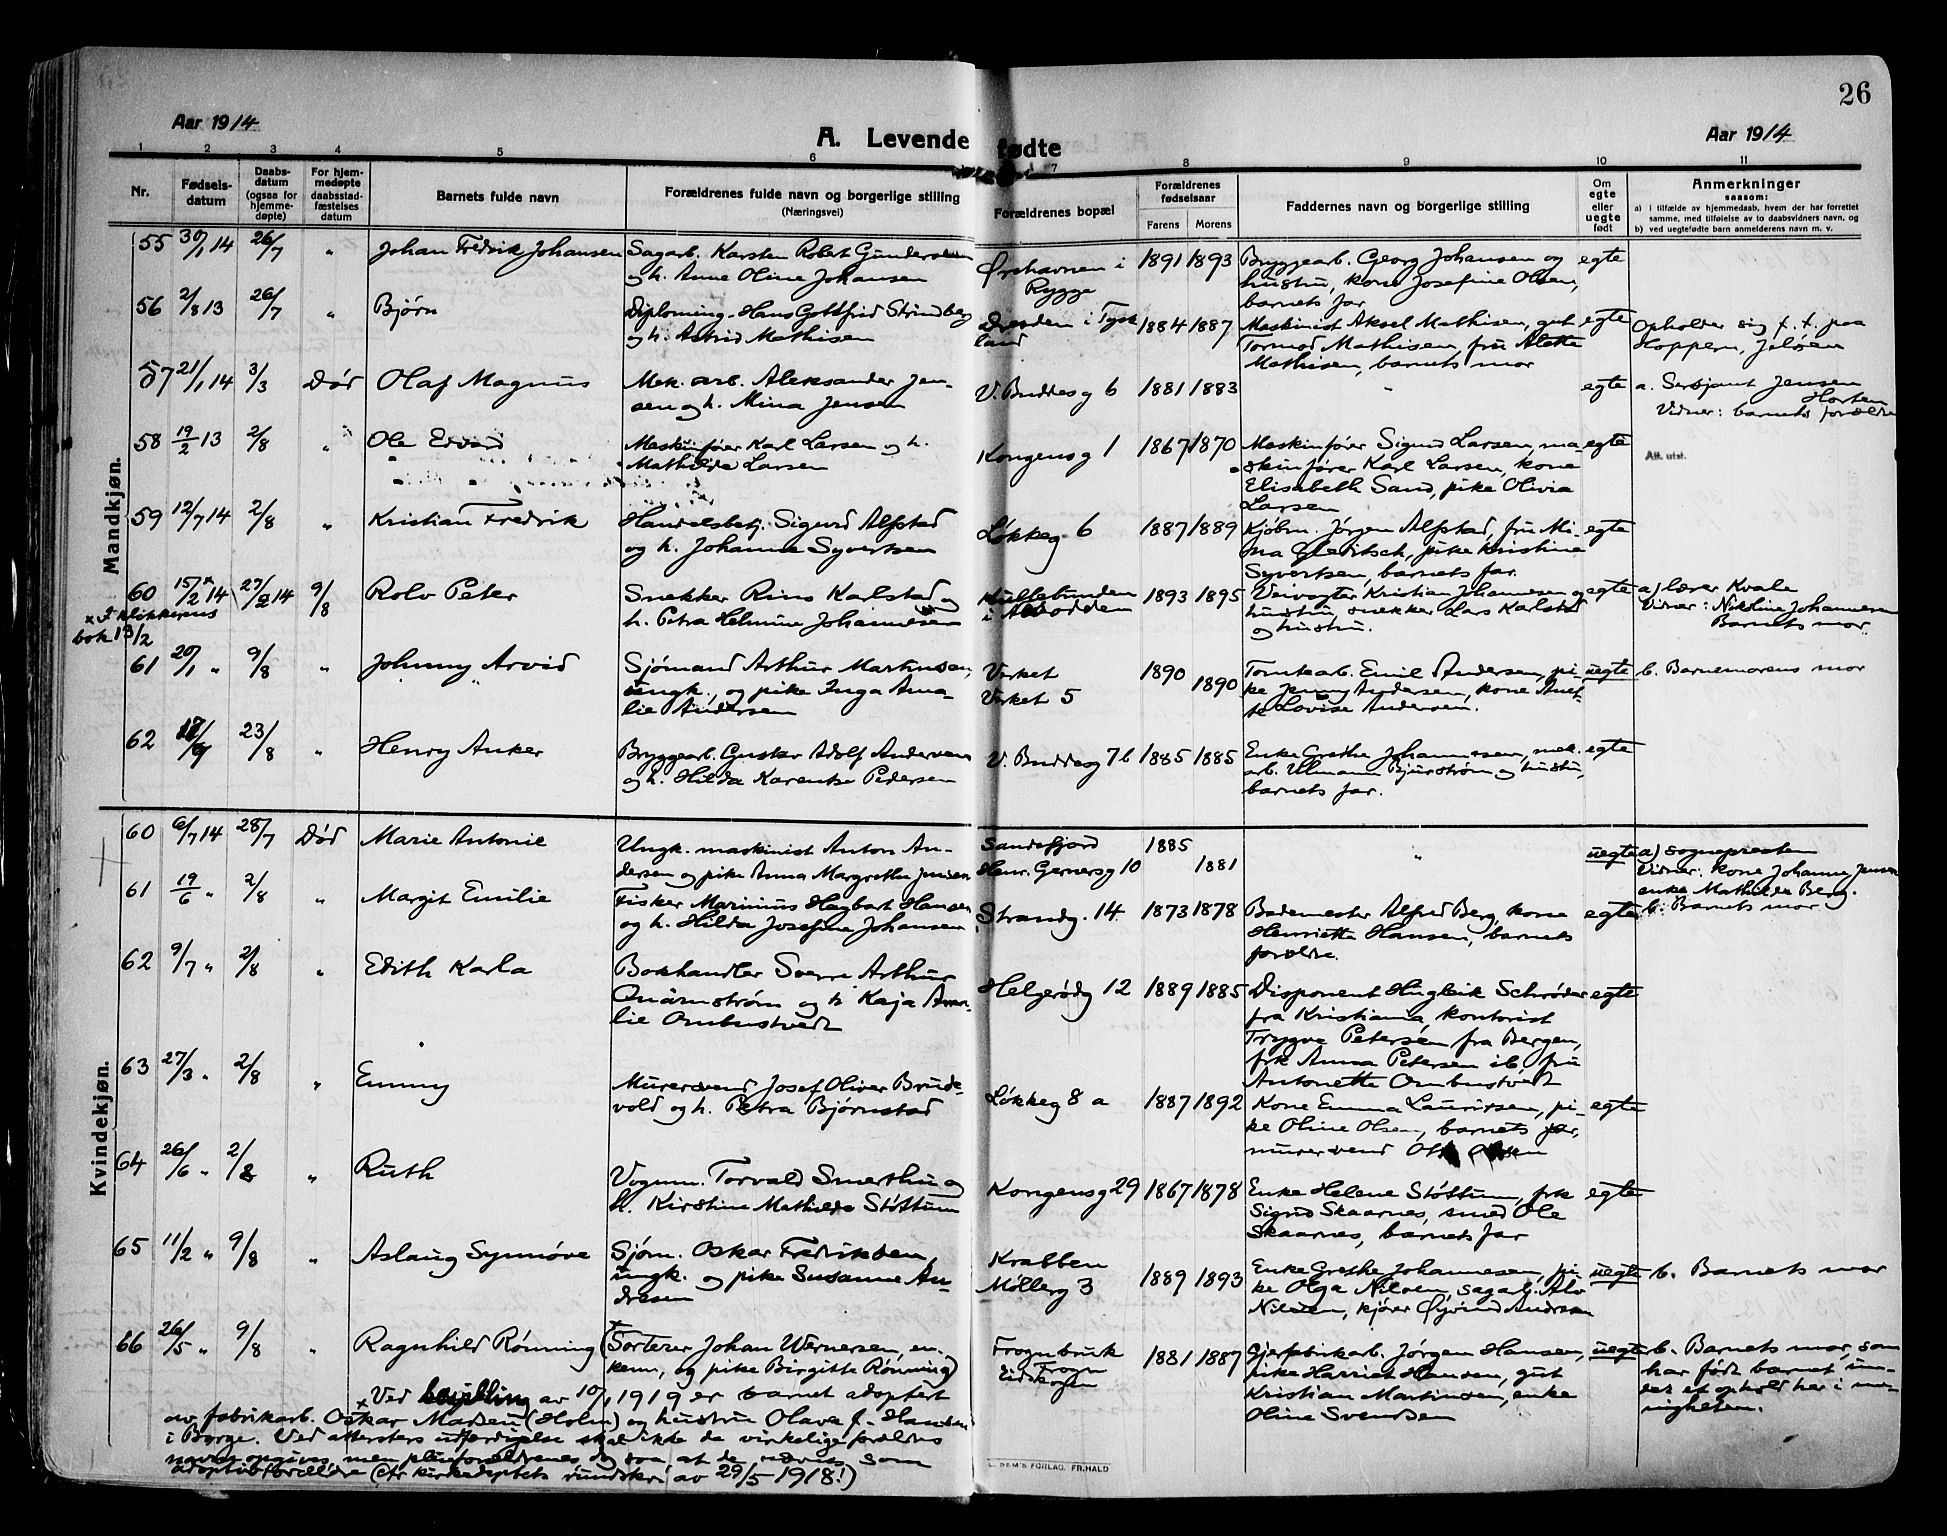 26
Aar 1914
A. Levende fødte
Aar 1914
1 2 3 4 5 6 7 8 9 10 11
Nr.
Fødsels-
datum
Daabs-
datum
(ogsaa for
hjemme-
døpte)
For hjem-
medøpte
daabsstad-
fæstelses
datum
Barnets fulde navn
Forældrenes fulde navn og borgerlige stilling
(Næringsvei)
Forældrenes bopæl
Forældrenes
fødselsaar
Farens Morens
Faddernes navn og borgerlige stilling
Om
egte
eller
uegte
født
Anmerkninger
saasom:
a) i tilfælde av hjemmedaab, hvem der har forrettet
samme, med tilføielse av to daabsvidners navn, og
b) ved uegtefødte barn anmelderens navn m. v.
Mandkjøn.
55 30/1 14 26/7 " Johan Fredrik Johansen
Sagarb. Karsten Robert Gundersen
og h. Anne Oline Johansen
Ørshavnen i
Rygge
1891 1893
Bryggearb. Georg Johansen og
hustru, kone Josefine Olsen,
barnets far
egte
56 2/8 13 26/7 " Bjørn
Diploming. Hans Gottfrid Strindberg
og h. Astrid Mathisen
Dresden i Tysk
land
1884 1887
Maskinist Aksel Mathisen, gut
Tormod Mathisen, fru Alette
Mathisen, barnets mor
egte
Opholder sig f. t. paa
Hoppern, Jeløen
57 21/1 14 3/3 Død Olaf Magnus
Mek. arb. Aleksander Jen-
sen og h. Mina Jensen
V. Buddesg 6
1881 1883
"
egte
a. Sersjant Jensen
Horten
Vidner: barnets forældre
58 19/2 13 2/8 " Ole Edvard
Maskinfører Karl Larsen og h.
Mathilde Larsen
Kongensg 1
1867 1870
Maskinfører Sigurd Larsen, ma-
skinfører Karl Larsen, kone
Elisabeth Sand, pike Olivia
Larsen
egte
Att. utst.
59 12/7 14 2/8 " Kristian Fredrik
Handelsbetj. Sigurd Alfstad
og h. Johanne Syvertsen
Løkkeg 6
1887 1889
Kjøbm. Jørgen Alfstad, fru Mi-
na Gleditsch, pike Kristine
Syvertsen, barnets far.
egte
60 15/2 x 14 27/2 14 9/8 Rolv Peter
x I klokkerens
bok 13/2
Snekker Rins Karlstad og
h. Petra Helmine Johannesen
i
1893 1895
Veivogter Kristian Johannesen og
hustru, snekker Lars Karlstad
og hustru.
egte
a) lærer Kvale
Vidner: Nikoline Johannesen
Barnets mor
61 20/1 " 9/8 " Johnny Arvid
Sjømand Arthur Martinsen,
ungk., og pike Inga Ama-
lie Andersen
Verket
Verket 5
1890
1890
Tomtearb. Emil Andersen, pi-
ke Jenny Andersen, kone Anet-
te Lovise Andersen.
uegte
b. Barnemorens mor
62 23/8 " Henry Anker
Bryggearb. Gustav Adolf Andersen
og h. Hilda Karentse Pedersen
V. Buddesg 7b
1885 1885
Enke Grethe Johannesen, mek.
arb. Ullmann Bjurstrøm og hustru,
barnets far.
egte
Kvindekjøn.
60 6/7 14 28/7 Død Marie Antonie
Ungk. maskinist Anton An-
dersen og pike Anna Margrethe Jensen
Sandefjord
Henr. Gernersg 10
1885
1881
"
uegte
a) sognepresten
Vidner: kone Johanne Jensen
enke Mathilde Berg.
b. Barnets mor
61 19/6 " 2/8 " Margit Emilie
Fisker Marinius Hagbart Hansen
og h. Hilda Josefine Johansen
Strandg. 14
1873 1878
Bademester Alfred Berg, kone
Henriette Hansen, barnets
forældre.
egte
62 9/7 " 2/8 " Edith Karla
Bokhandler Sverre Arthur
Quarnstrøm og h Kaja Ama-
lie Ombustvedt
Helgerødg 12
1889 1885
Disponent Hugleik Schrøder
fra Kristiania, kontorist
Trygve Petersen fra Bergen,
frk Anna Petersen ib, fru
Antonette Ombustvedt
egte
63 27/3 " 2/8 " Emmy
Murersvend Josef Oliver Brude-
vold og h. Petra Bjørnstad
Løkkeg 8 a
1887 1892
Kone Emma Lauritsen, pi-
ke Oline Olsen, barnets far,
murersvend
egte
64 26/6 " 2/8 " Ruth
Vognm. Torvald Smerthu og
h. Kirstine Mathilde Støttum
Kongensg 29
1867 1878
Enke Helene Støttum, frk
Sigrid Skaarnes, smed Ole
Skaarnes, barnets far
egte
65 11/2 " 9/8 " Aslaug Synnøve
Sjøm. Oskar Fredriksen,
ungk. og pike Susanne An-
dresen
Krabben
Møllerg 3
1889 1893
Enke Grethe Johannesen, pi-
ke Olga Nilsen, sagarb. Alv
Nilsen, kjører Øyvind Andresen
uegte
b. Barnets mor
66 26/5 " 9/8 " Ragnhild Rønning
(x Sorterer Johan Wernersen, en-
kem, og pike Birgitte Rønning)
Frognbruk
Frogn
Eidskogen
1881 1887
Gjerfabrikarb. Jørgen Hansen,
pike Harriet Hansen, gut
Kristian Martinsen, enke
Oline Svendsen
uegte
b. Barnets mor, som
har født barnet un-
der et ophold her i me-
nigheten.
x Ved bevilling av 10/1 1919 er barnet adoptert
av fabrikarb. Oskar Madsen (Holm) og hustru Olava f. Hansen
i Borge. Ved attesters utfærdigelse skal ikke de virkelige forældres
navne opgives, men pleieforældrenes og saa, at de nævnes som
adoptivforældre (cfr kirkedeptets rundskr. av 29/5 1918!)
SEM'S FORLAG. FR.HALD